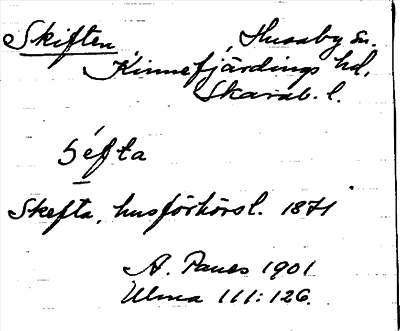 Skiften, Husaby sn.
Kinnefjärdings hd,
Skarab. l.
Séfta
Skefta, husförhörsl. 1871
A. Palles 1901
Ulma 111:126.